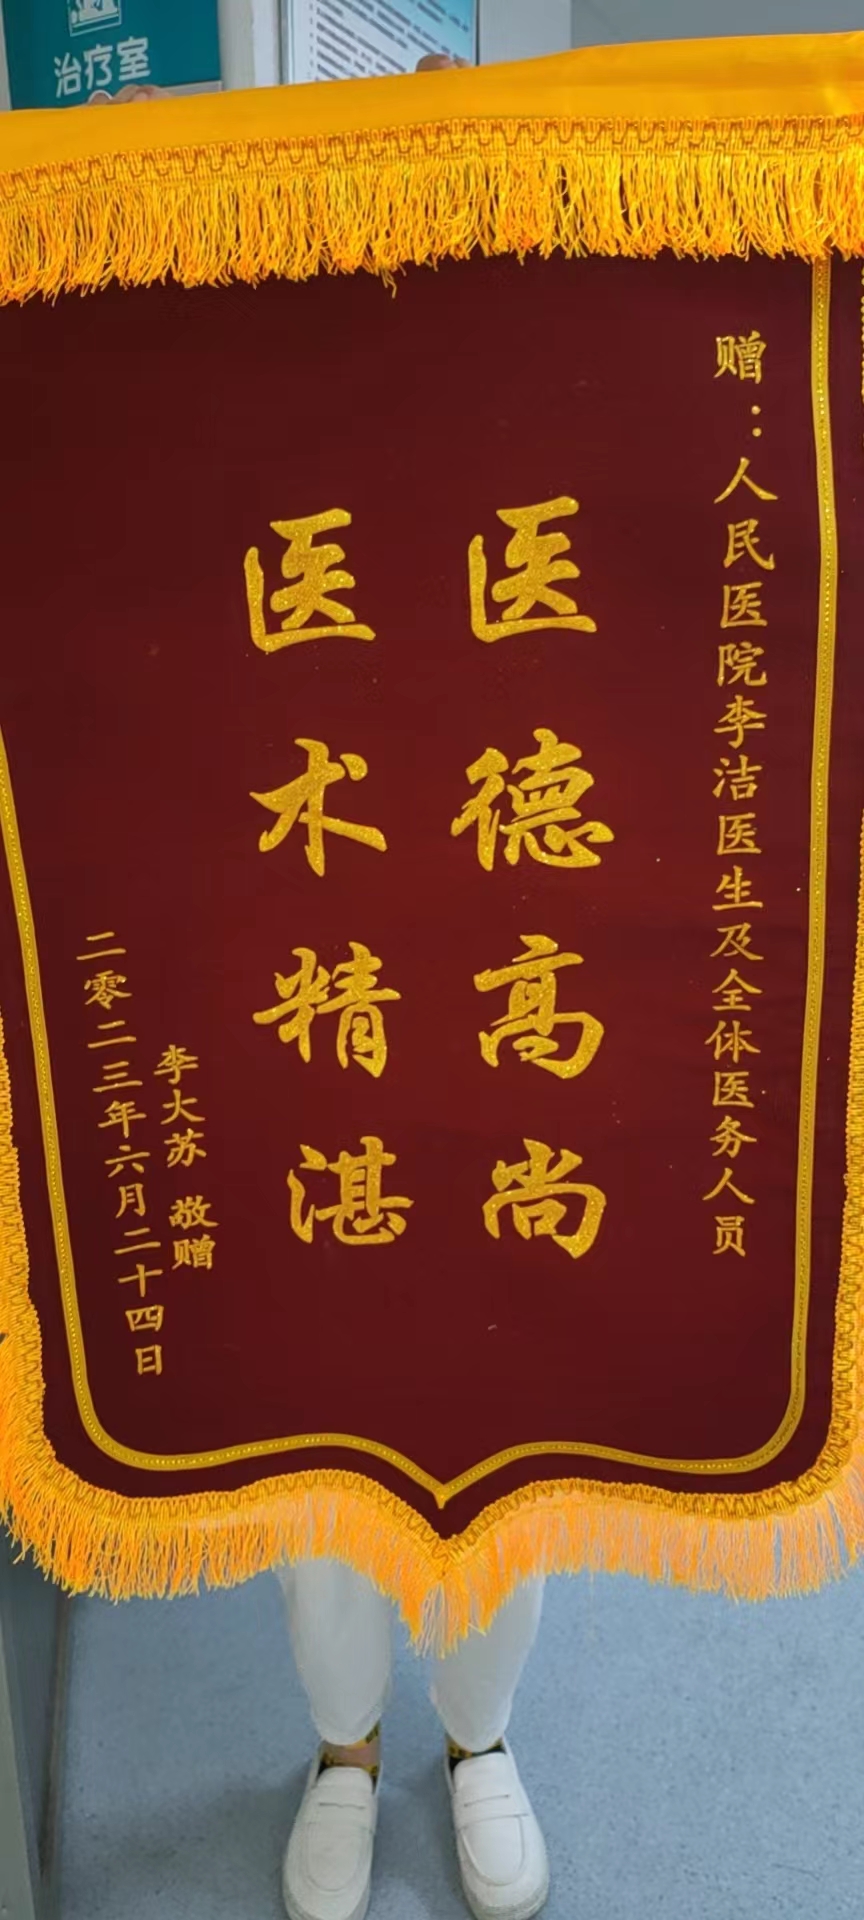 治疗室
赠：人民医院李洁医生及全体医务人员
医德高尚
医术精湛
李大苏 敬赠
二零二三年六月二十四日